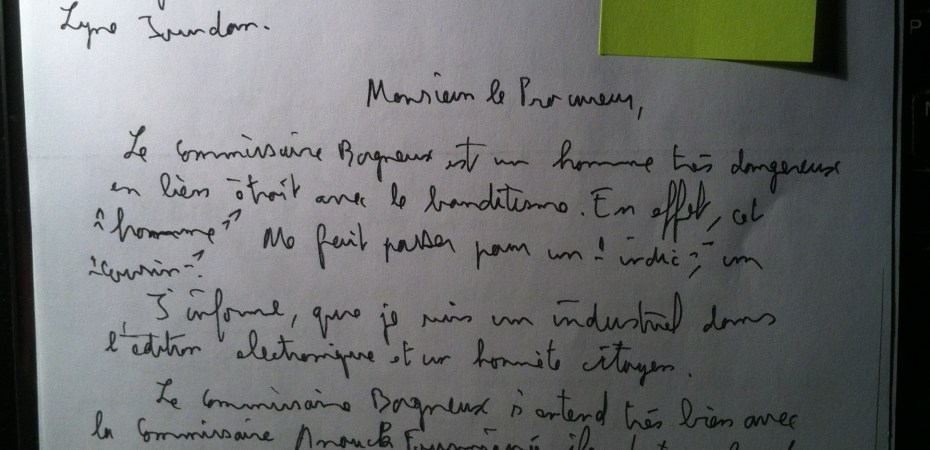 Lyne Jourdan.
Monsieur le Procureur,
Le Commissaire Bagneux est un homme très dangereux
en lien étroit avec le banditisme. En effet, cet
"homme" Me fait passer pour un "indic", un
"cousin".
J'informe, que je suis un industriel dans
l'édition electronique et un honnête citoyen.
Le Commissaire Bagneux s'entend très bien avec
la Commissaire Anouck